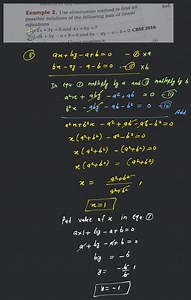 Example 2. Use elimination method to find all
possible solutions of the following pair of linear
equations
ax + by - a + b = 0 — ① × a
bx - ay - a - b = 0 — ② × b
In eqn ① multiply by a and ② multiply by b
a²x + aby - a² + ab = 0
b²x - aby - ab - b² = 0
Add
a²x + b²x - a² + ab - ab - b² = 0
x(a² + b²) - a² - b² = 0
x(a² + b²) - (a² + b²) = 0
x(a² + b²) = (a² + b²)
x = a² + b² / a² + b²
x = 1
Put value of x in eqn ①
ax1 + by - a + b = 0
a + by - a + b = 0
by = -b
y = -b/b
y = -1